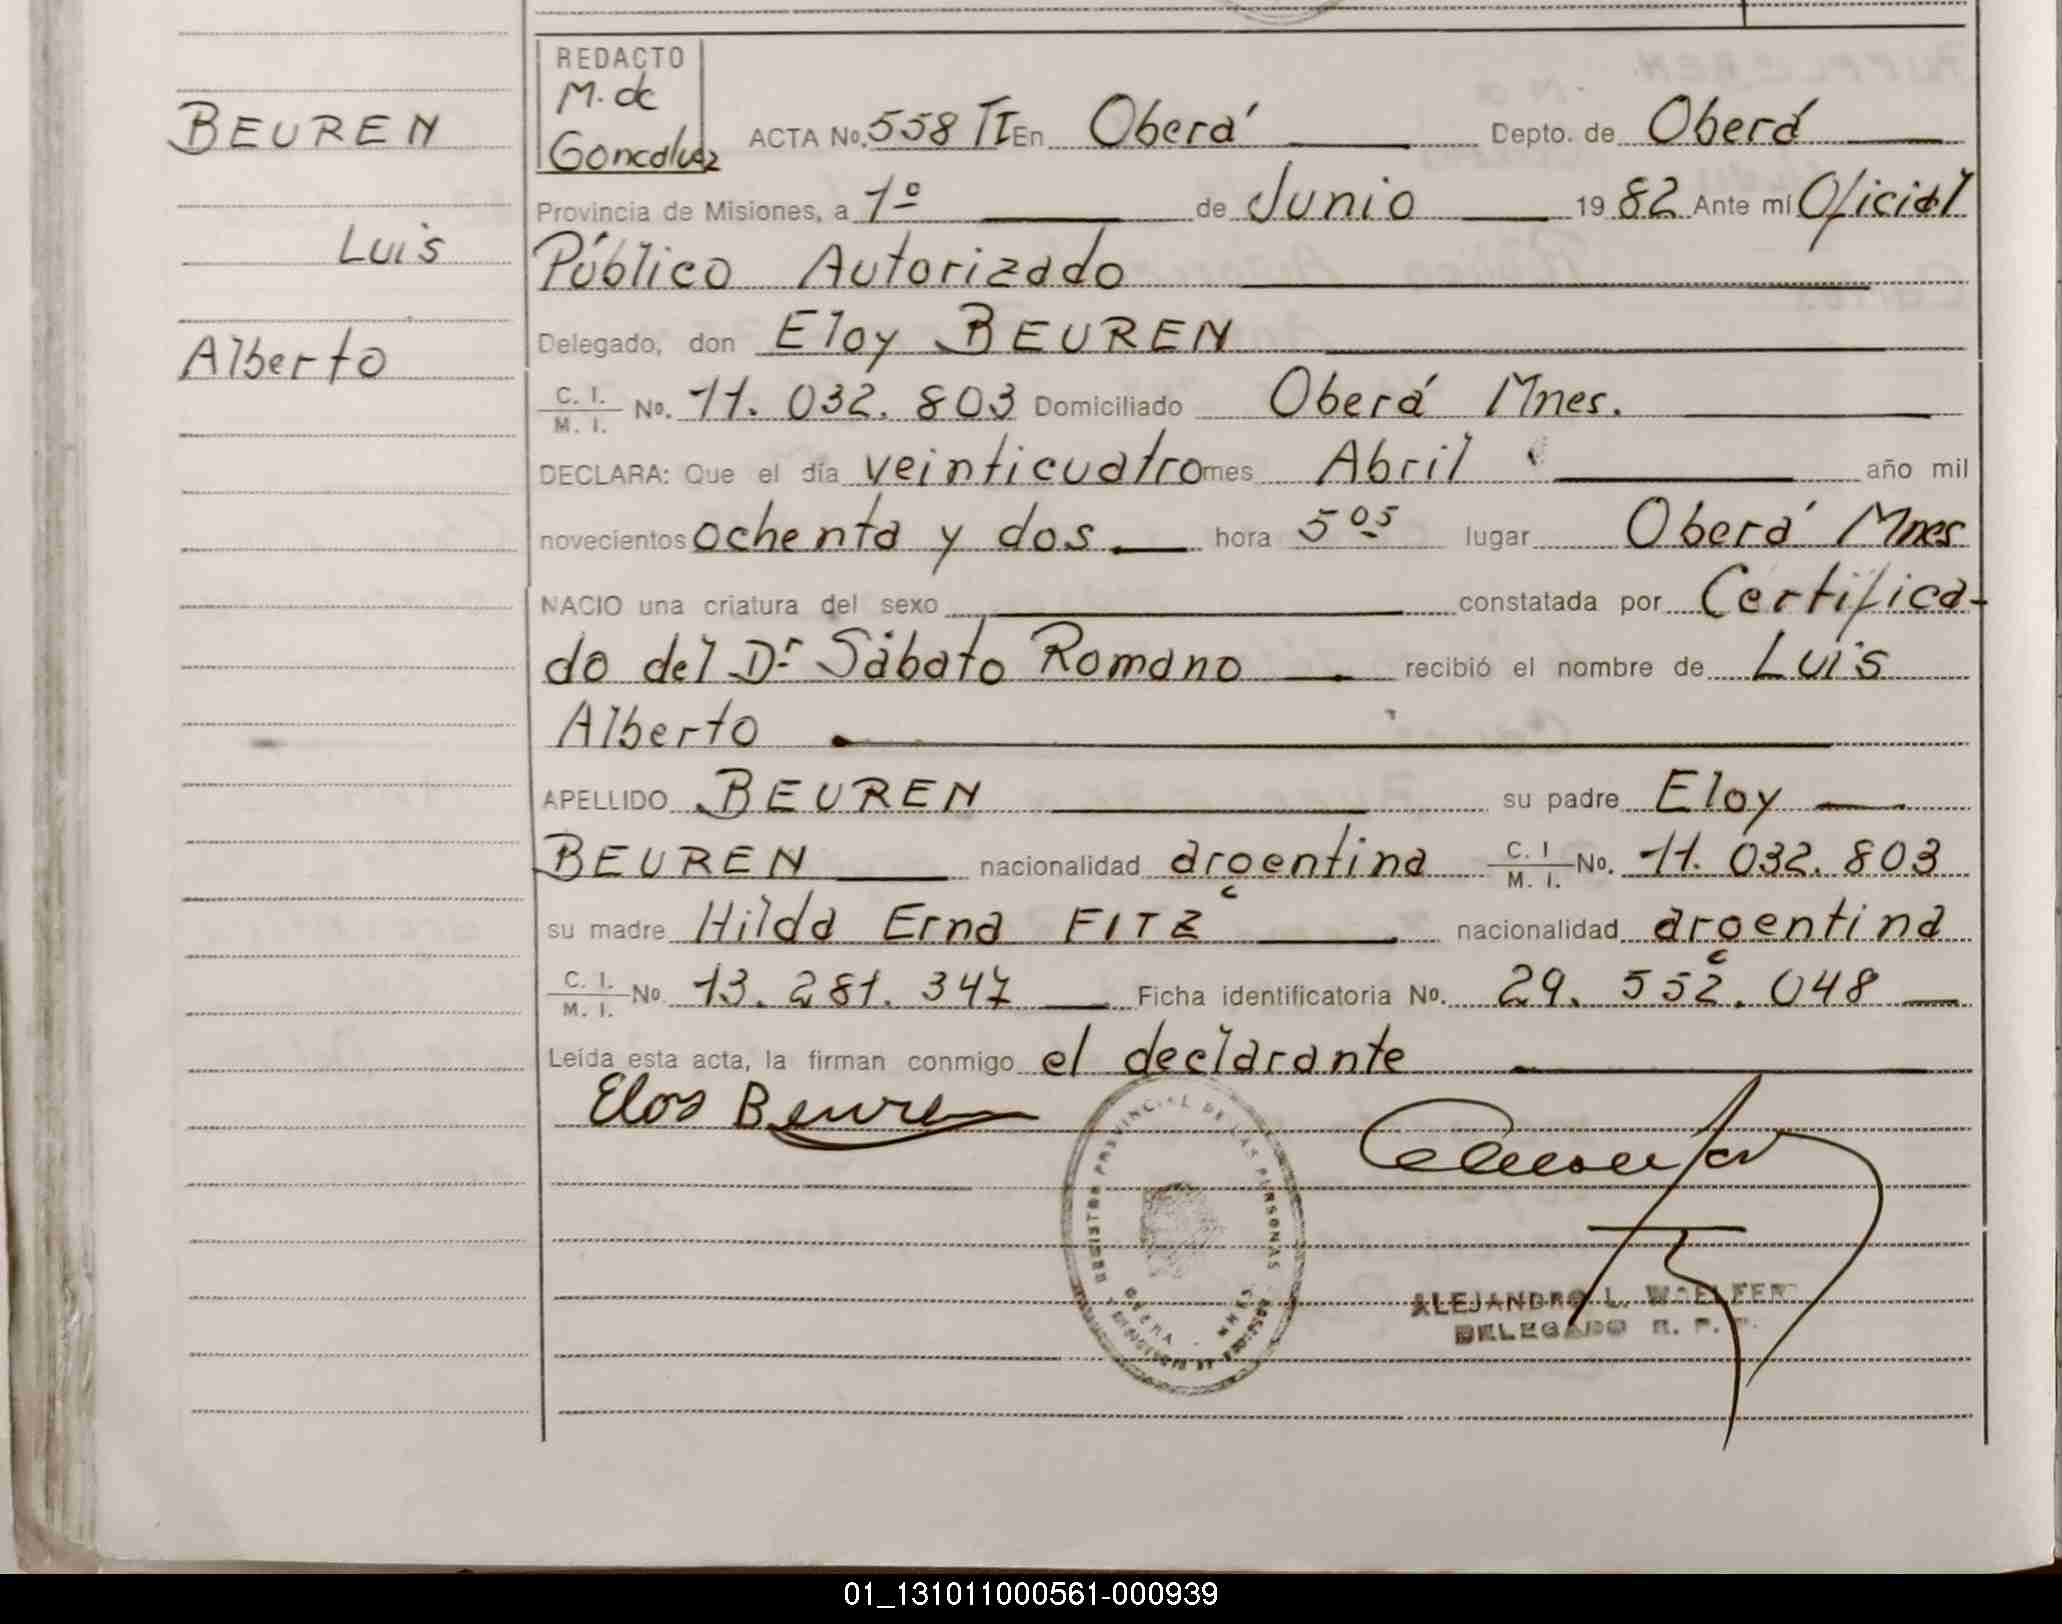 REDACTO
M. de
Goncalvez
BEUREN
Luis
Alberto
ACTA No. 558 TI En Oberá Depto. de Oberá
Provincia de Misiones, a 1º de Junio 19 82 Ante mi Oficial
Público Autorizado
Delegado, don Eloy BEUREN
C. I. / M. I. No. 11. 032. 803 Domiciliado Oberá Mnes.
DECLARA: Que el día veinticuatro mes Abril año mil
novecientos ochenta y dos hora 5 05 lugar Oberá Mnes
NACIO una criatura del sexo constatada por Certifica-
do del Dr Sábato Romano recibió el nombre de Luis
Alberto
APELLIDO BEUREN su padre Eloy
BEUREN nacionalidad argentina C. I / M. I. No. 11. 032. 803
su madre Hilda Erna FITZ nacionalidad argentina
C. I. / M. I. No. 13. 281. 347 Ficha identificatoria No. 29. 552. 048
Leída esta acta, la firman conmigo el declarante
Eloy Beuren
REGISTRO PROVINCIAL DE LAS PERSONAS
OBERA - MNES
ALEJANDRO L. WOELFERT
DELEGADO R. P. P.
01_131011000561-000939